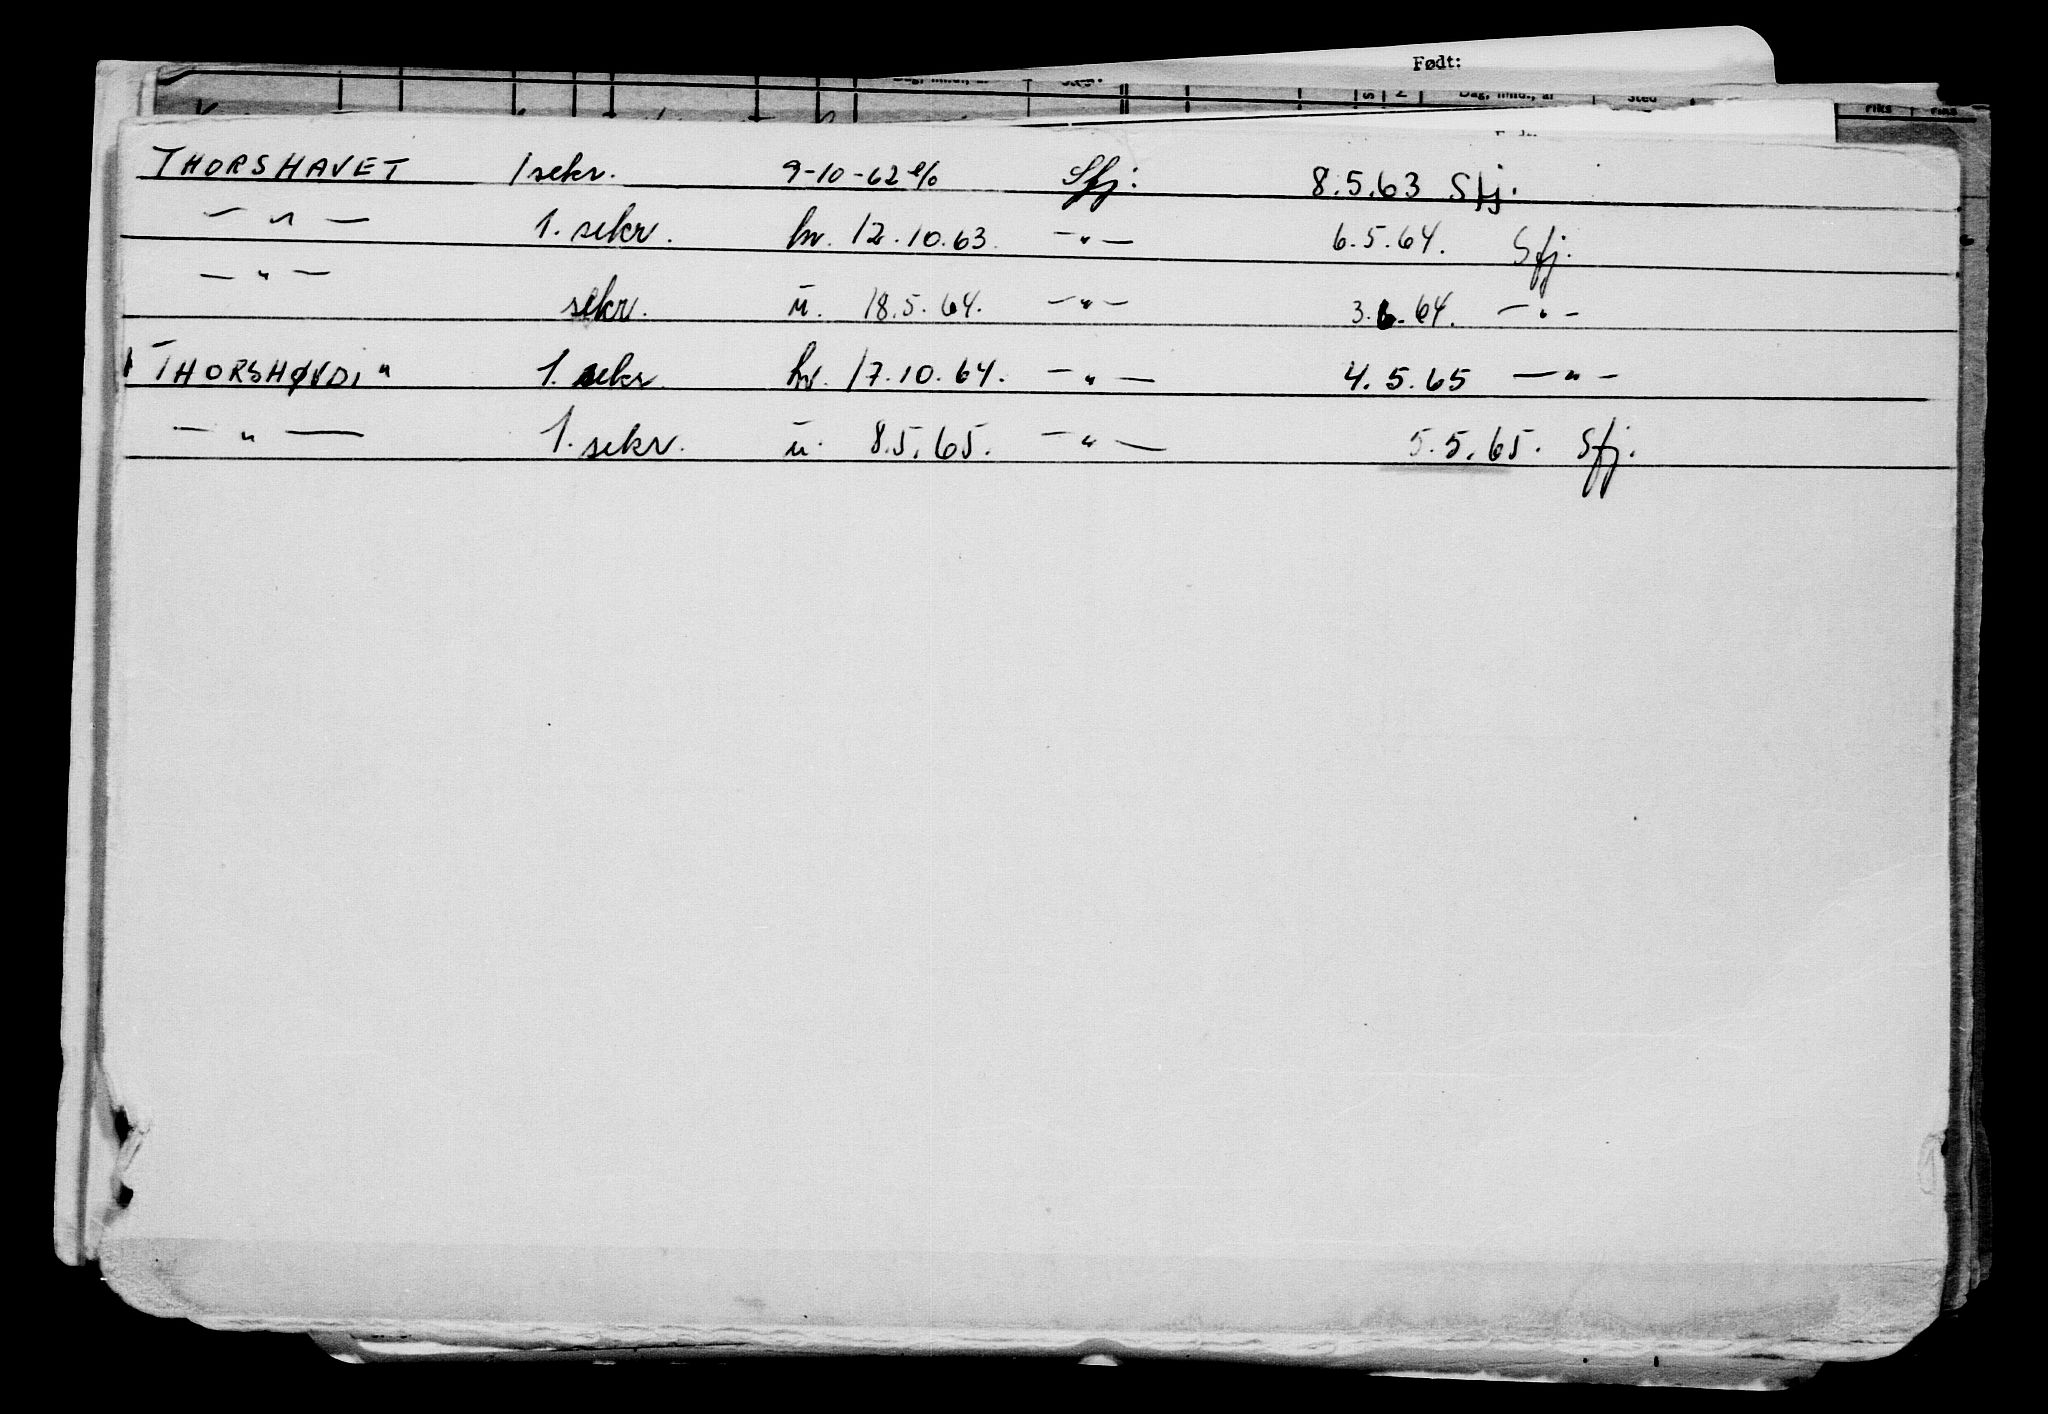 Født:
Dag, mnd., år Sted
THORSHAVET 1 sekr. 9-10-62 Sfj. 8.5.63 Sfj.
— " — 1. sekr. hv. 12.10.63. — " — 6.5.64. Sfj.
— " — sekr. u. 18.5.64. — " — 3.6.64. — " —
"THORSHØVDI" 1. sekr. hv. 17.10.64. — " — 4.5.65 — " —
— " — 1. sekr. u. 8.5.65. — " — 5.5.65. Sfj.